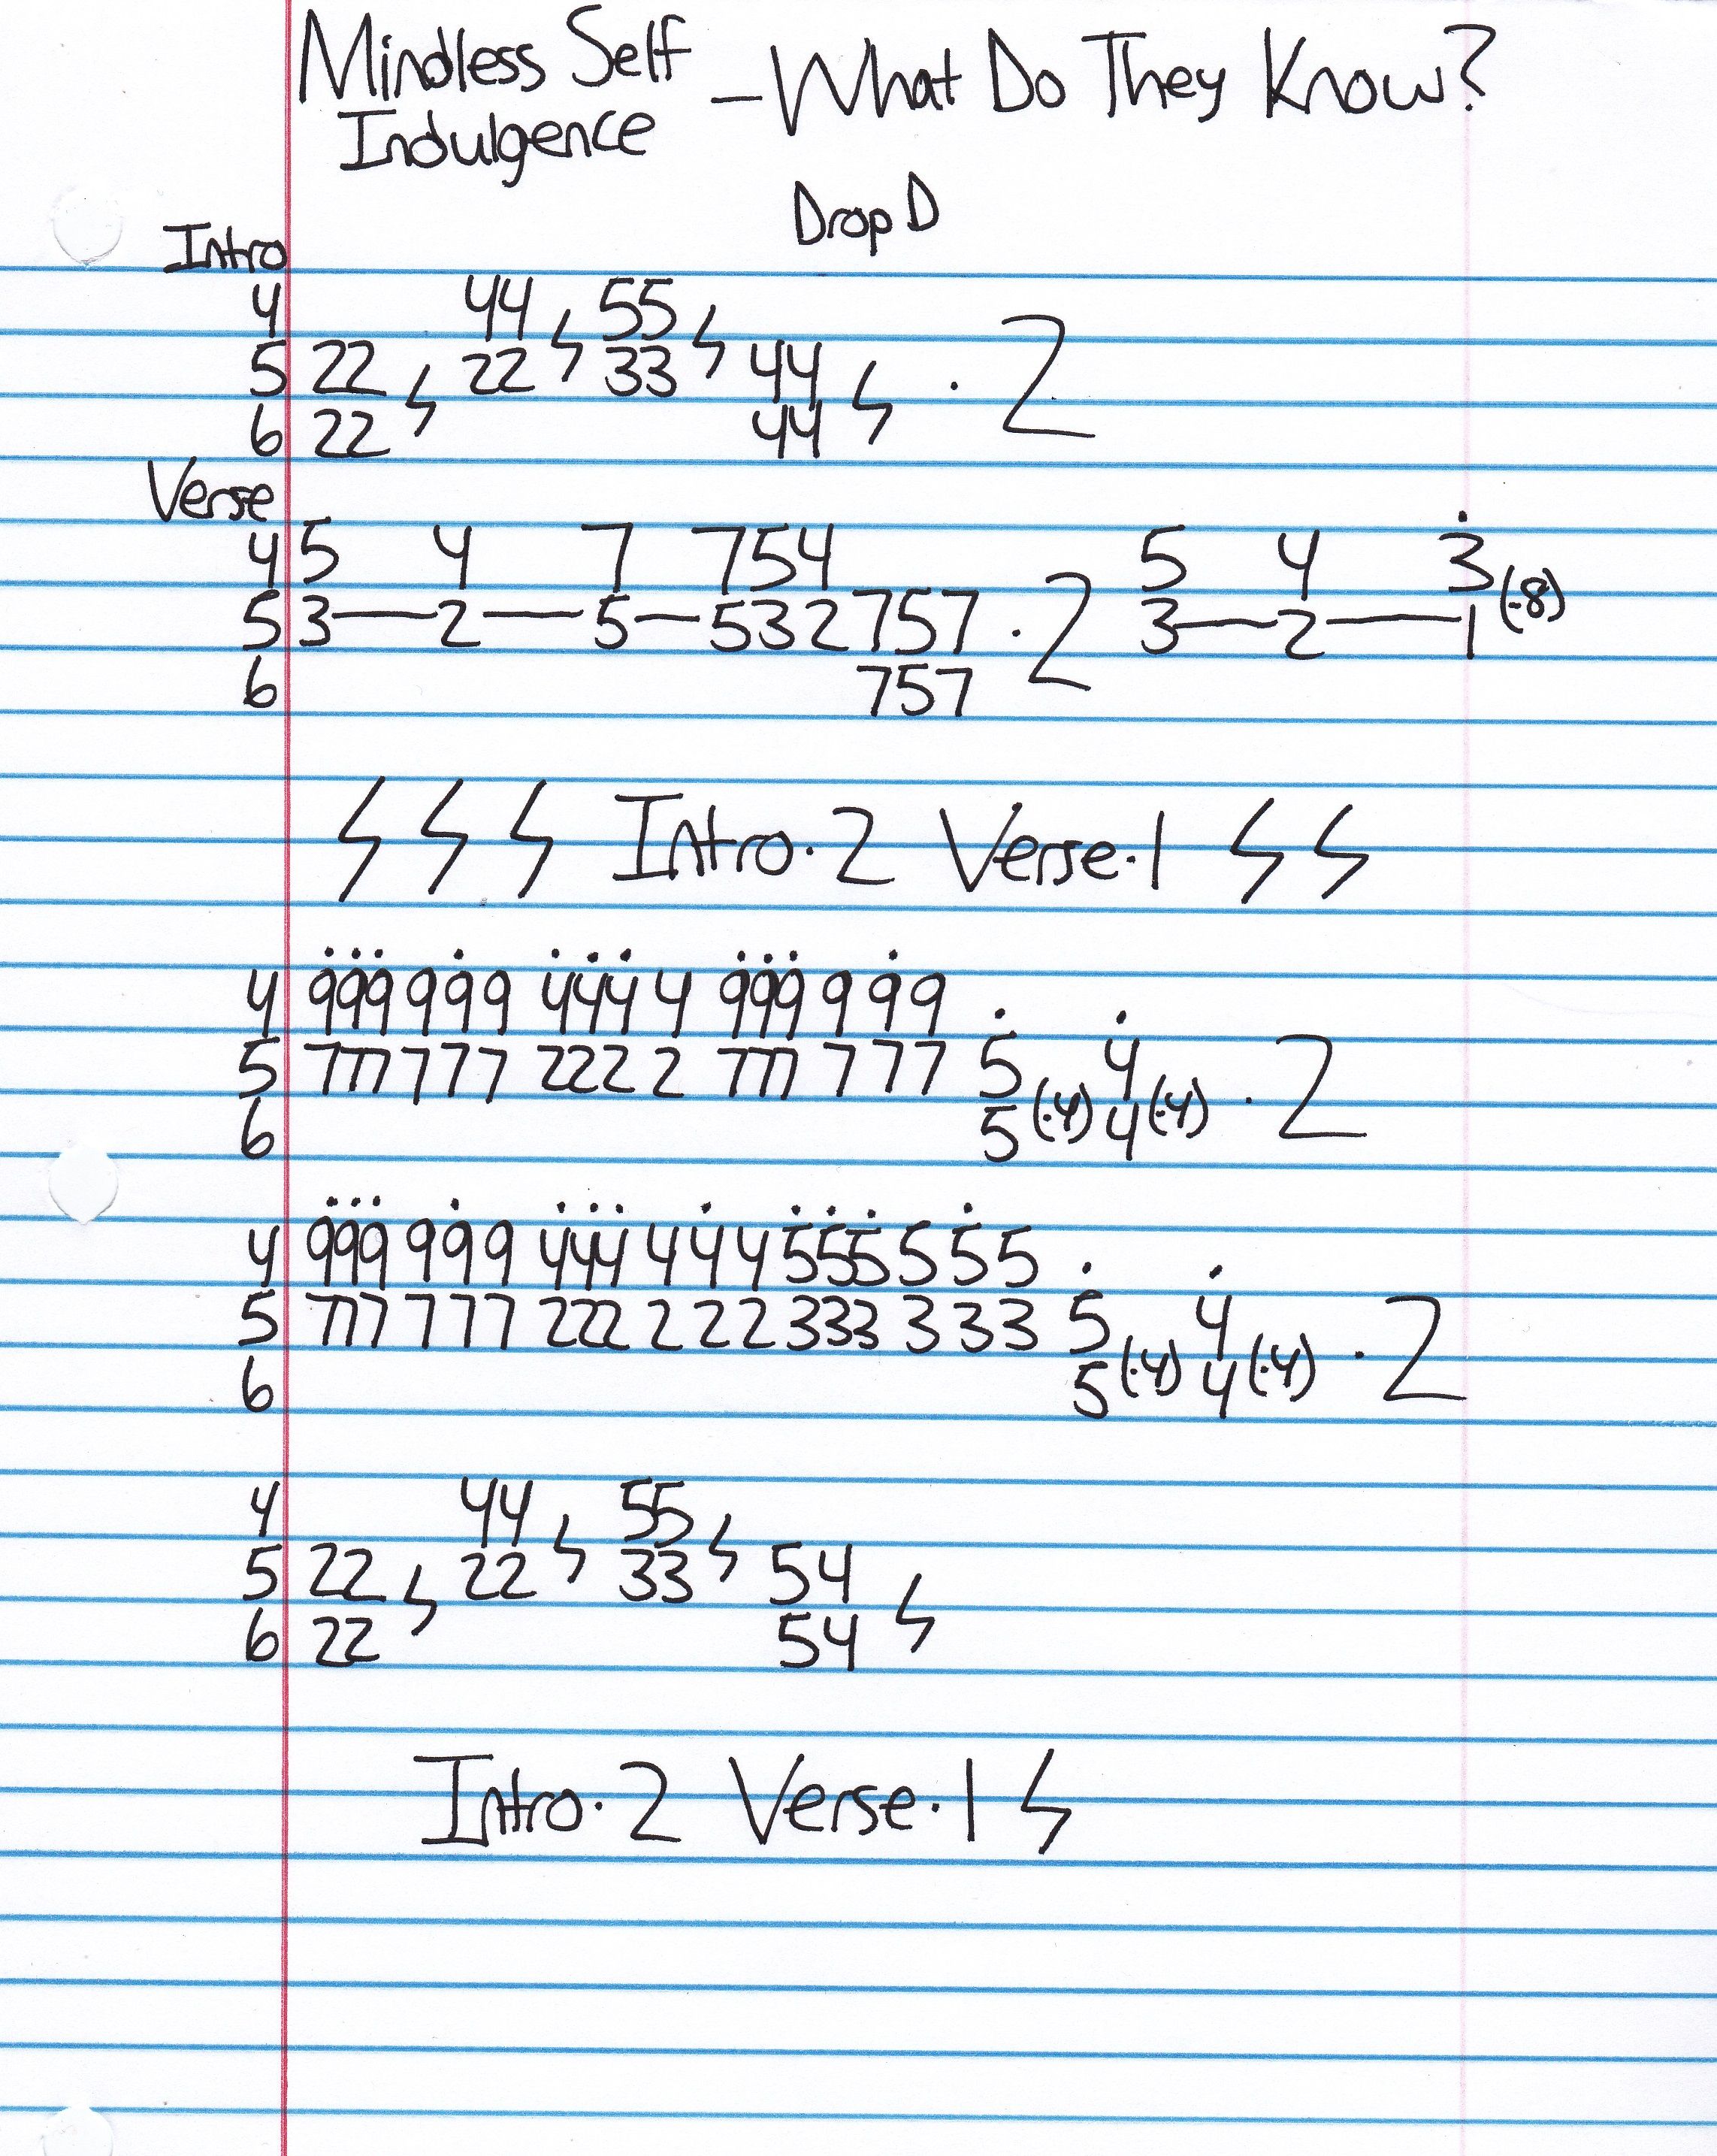 Mindless Self Indulgence – What Do They Know?
Drop D
Intro
4 44 ϟ 55 ϟ
5 22 ϟ 22 33 44 ϟ · 2
6 22 44
Verse
4 5 4 7 754 5 4 3
5 3—2—5—532757 · 2 3—2—1 (·8)
6 757
ϟ ϟ ϟ Intro·2 Verse·1 ϟ ϟ
4 999 999 444 4 999 9 99
5 777 777 222 2 777 7 77 5 4 · 2
6 5 (·4) 4 (·4)
4 999 999 444 444 555 5 55
5 777 777 222 222 333 333 5 4 · 2
6 5 (·4) 4 (·4)
4 44 ϟ 55 ϟ
5 22 ϟ 22 33 54 ϟ
6 22 54
Intro·2 Verse·1 ϟ